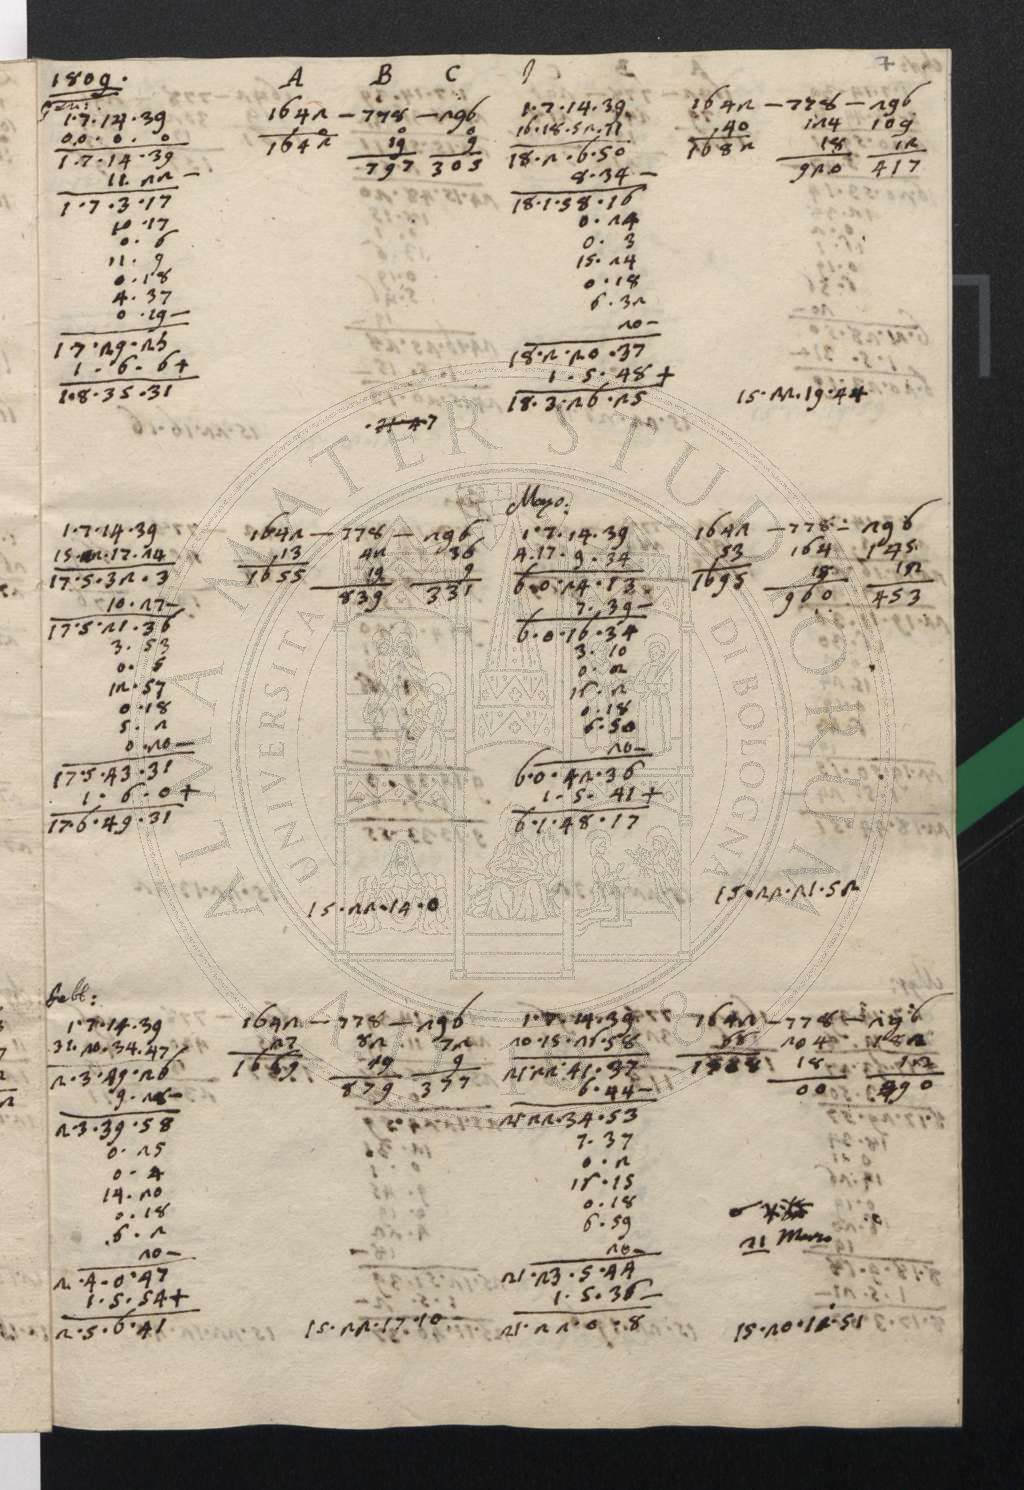 7
1809.
A B C
Gen:
1.7.14.39
0.0.0.0
1.7.14.39
11.22 —
1.7.3.17
10.17
0.6
11.9
0.18
4.37
0.19 —
1.7.29.25
1.6.6 +
1.8.35.31
1642 — 778 — 296
0 0 0
1642 19 9
797 305
1.7.14.39
16.18.52.11
18.2.6.50
8.34 —
18.1.58.16
0.24
0.3
15.24
0.18
6.32
20 —
18.2.20.37
1.5.48 +
18.3.26.25
1642 — 778 — 296
40 124 109
1682 18 12
920 417
15.22.19.44
1.7.14.39
15.22.17.24
17.5.32.3
10.27 —
17.5.21.36
3.53
0.5
12.57
0.18
5.2
0.20 —
17.5.43.31
1.6.0 +
17.6.49.31
1642 — 778 — 296
13 42 36
1655 19 9
839 331
15.22.14.0
Mayo:
1.7.14.39
4.17.9.34
6.0.24.13
7.39 —
6.0.16.34
3.10
0.2
15.2
0.18
6.50
20 —
6.0.42.36
1.5.41 +
6.1.48.17
1642 — 778 — 296
53 164 145
1695 18 12
960 453
15.22.21.52
Sett:
1.7.14.39
31.20.34.47
2.3.49.26
9.28 —
2.3.39.58
0.25
0.4
14.20
0.18
6.2
20 —
2.4.0.47
1.5.54 +
2.5.6.41
1642 — 778 — 296
27 82 72
1669 19 9
879 377
15.22.17.10
1.7.14.39
20.15.21.58
21.22.41.37
6.44 —
21.22.34.53
7.37
0.2
15.15
0.18
6.59
20 —
21.23.5.44
1.5.36 —
21.22.0.8
1642 — 778 — 296
204
18 12
00 490
21 Marzo
15.20.12.51